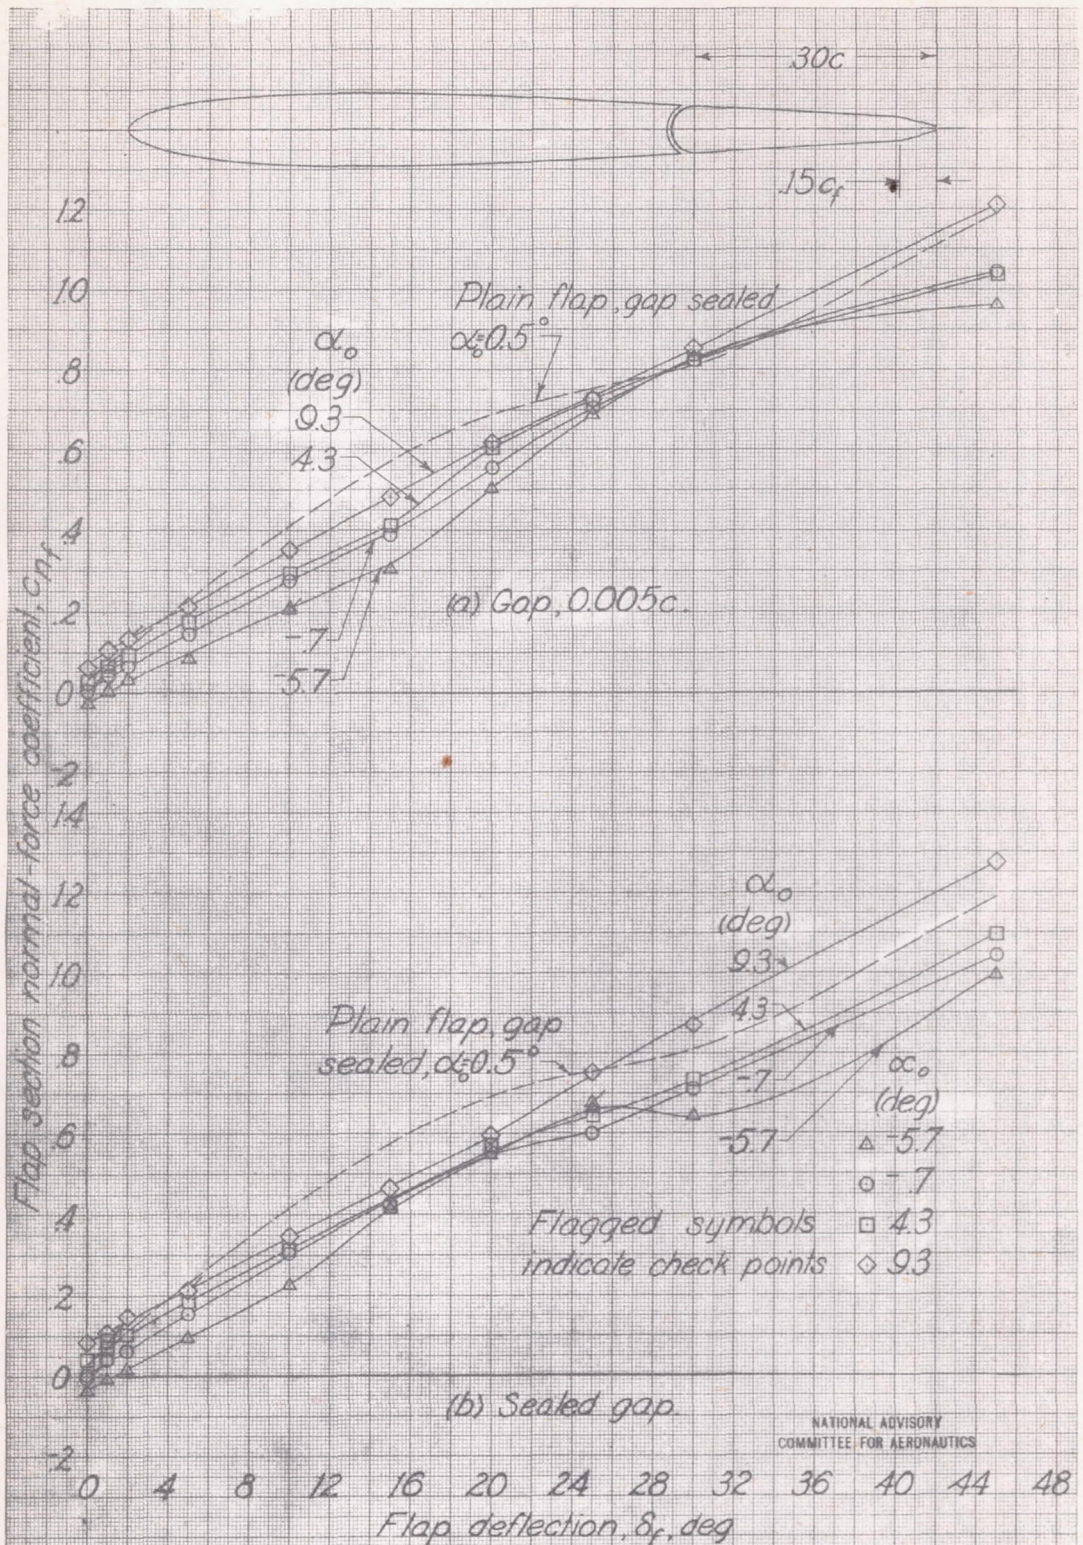 .30c
.15cf
1.2
1.0
.8
.6
.4
.2
0
-.2
Plain flap, gap sealed
α₀=0.5°
α₀
(deg)
9.3
4.3
-.7
-5.7
(a) Gap, 0.005c.
Flap section normal-force coefficient, cnf
1.4
1.2
1.0
.8
.6
.4
.2
0
-.2
α₀
(deg)
9.3
4.3
-.7
-5.7
Plain flap, gap
sealed, α₀=0.5°
α₀
(deg)
△ -5.7
○ -.7
Flagged symbols □ 4.3
indicate check points ◇ 9.3
(b) Sealed gap.
NATIONAL ADVISORY
COMMITTEE FOR AERONAUTICS
0 4 8 12 16 20 24 28 32 36 40 44 48
Flap deflection, δf, deg